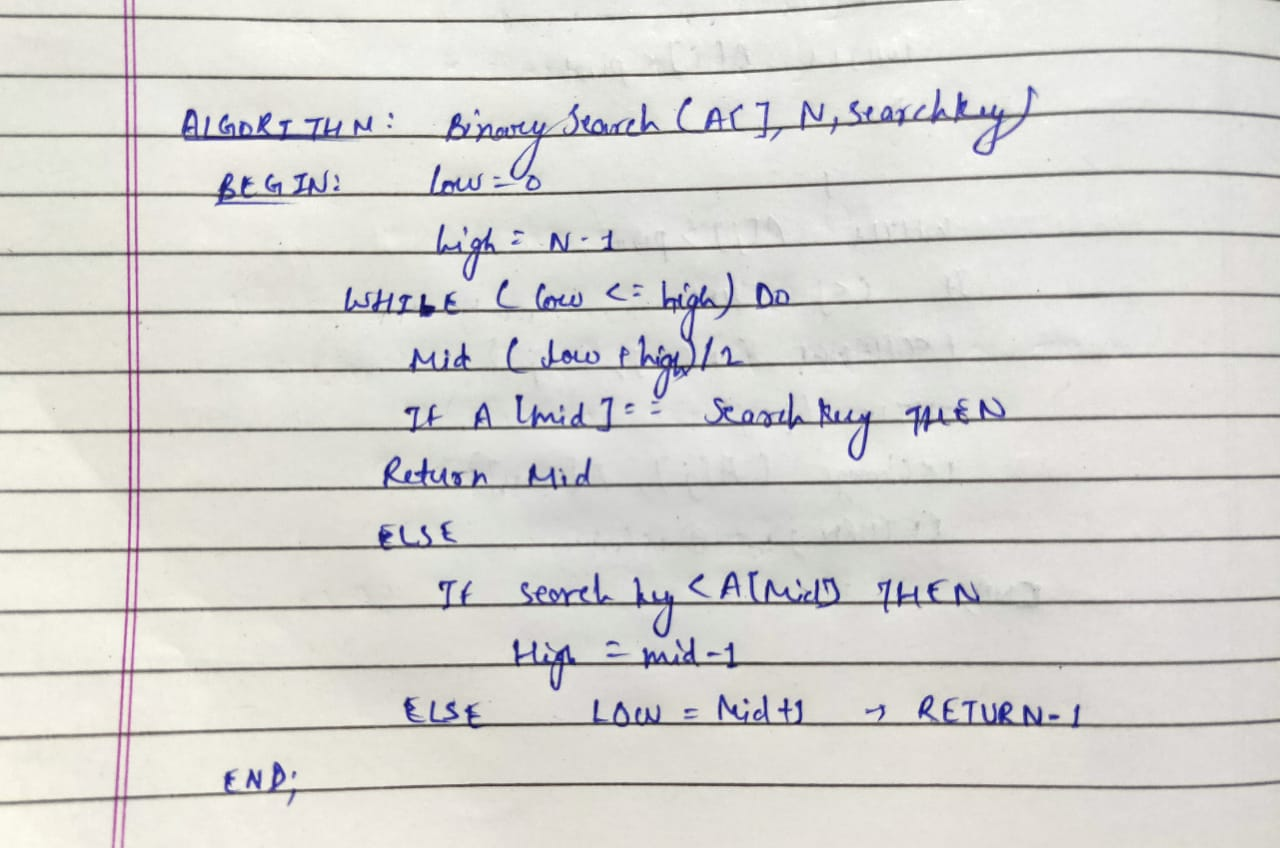 ALGORITHM: Binary Search (A[], N, Searchkey)
BEGIN: low = 0
high = N-1
WHILE (low <= high) DO
Mid (low + high)/2
If A [mid] == Search key THEN
Return Mid
ELSE
If search key < A[Mid] THEN
High = mid-1
ELSE LOW = Mid+1 → RETURN-1
END;